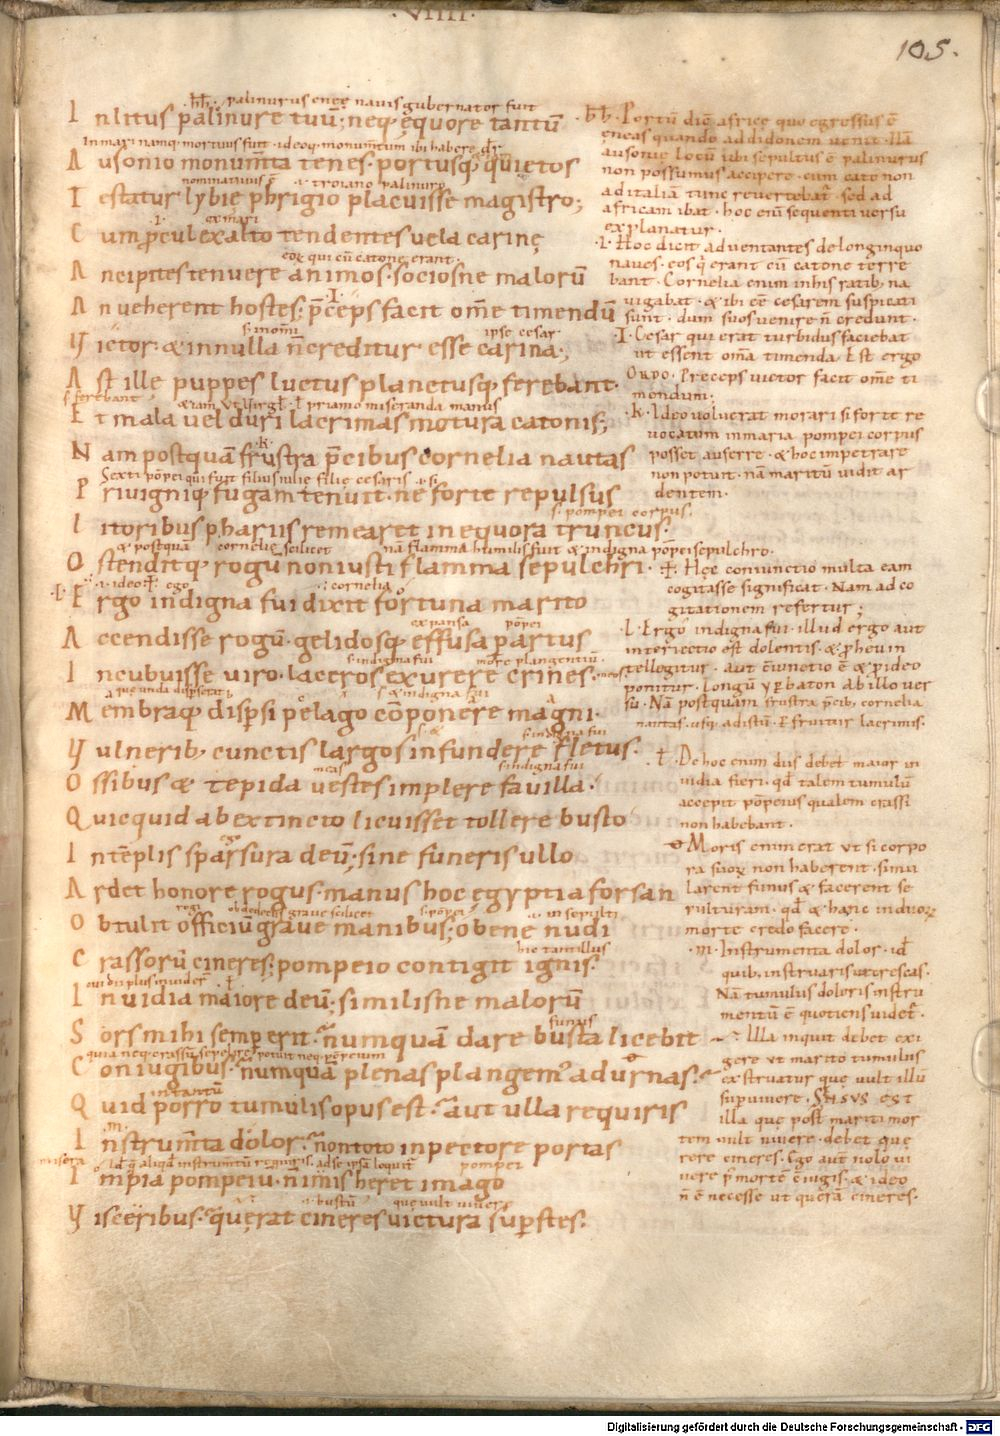 ·VIIII·
105.
·hh· palinurus eneę nauis gubernator fuit
I nlitus palinure tuū; neq; ęquore tantū
In mari namq; mortuus fuit · ideoq; monumtum ibi habere dr̄
A usonio monumta tenes· portusq; quietos
nominatiuus ē · troiano palinuro
T estatur lybie phrigio placuisse magistro;
·i· ex mari
C um pcul ex alto tendentes uela carinę
eos qui cū catone erant·
A ncipites tenuere animos· sociosne malorū
·I·
A n ueherent hostes; pceps facit om̄e timendū
s· in om̄i ipse cesar
V ictor· & in nulla n̄ creditur esse carina;
A st ille puppes luctus planctusq; ferebant·
s· ferebant &iam ut uirgł· priamo miseranda manus
E t mala uel duri lacrimas motura catonis;
·k·
N am postquā frustra pcibus cornelia nautas
Sexti pōpei qui fuit filius iulię filię cesaris
P riuigniq; fugam tenuit· ne forte repulsus
s· pompei corpus·
L itoribus phariis remearet in equora truncus·
& postquā cornelię scilicet nā flamma humilis fuit & indigna pōpei sepulchro·
O stenditq; rogū non iusti flamma sepulchri·
·L· ·i· ideo ego cornelia
E rgo indigna fui dixit fortuna marito
expansa pōpei
A ccendisse rogū· gelidosq; effusa partus
s· indigna fui more plangentiū·
I ncubuisse uiro· laceros exurere crines· meos·
que unda disperserat s· & indigna fui
M embraq; dispsi pelago cōponere magni·
s· indigna fui
V ulnerib; cunctis largos infundere fletus·
meas s· indigna fui
O ssibus & tepida uestes implere fauilla·
Q uicquid ab extincto licuisset tollere busto
I n tēplis sparsura deū; sine funeris ullo
A rdet honore rogus· manus hoc ęgyptia forsan
rogi ob dedecus graue scilicet s· pōpei insepulti
O btulit officiū graue manibus; o bene nudi
hic tantillus
C rassorū cineres; pompeio contigit ignis·
I nuidia maiore deū; similisne malorū
funus
S ors mihi semper erit· numquā dare busta licebit
quia neq; crassū sepelire potuit neq; pōpeium
C oniugibus· numquā plenas plangem; ad urnas·
in tantū
Q uid porro tumulis opus est· aut ulla requiris
·m·
I nstrumta dolor· non toto in pectore portas
misera pompei
I mpia pompeiū· nimis heret imago
bustū que uult uiuere
V isceribus· querat cineres uictura supstes·
·hh· Portū dicit africę quo egressus ē
ęneas quando ad didonem uenit· Nā
ausonię locū ubi sepultus ē palinurus
non possumus accipere· cum cato non
ad italiā tunc reuertebat· sed ad
africam ibat· hoc enī sequenti uersu
explanatur·
·i· Hoc dicit aduentantes de longinquo
naues· eos q̄ erant cū catone terre
bant· Cornelia enim in his ratib; na
uigabat· & ibi ēē cesarem suspicati
sunt· dum suos uenire n̄ credunt·
·I· Cesar qui erat turbidus faciebat
ut essent om̄a timenda· Est ergo
Ordo· Preceps uictor facit om̄e ti
mendum;
·k· Ideo uoluerat morari si forte re
uocatum in maria pompei corpus
posset auferre· & hoc impetrare
non potuit· nā maritū uidit ar
dentem·
Hęc coniunctio multa eam
cogitasse significat· Nam ad co
gitationem refertur;
·L· Ergo indigna fui· illud ergo aut
interiectio est dolentis· & pheu in
tellegitur· aut cōiunctio ē & p ideo
ponitur· Longū yperbaton ab illo uer
su· Nā postquam frustra pcib; cornelia
nautas· usq; ad istū· Et fruitur lacrimis·
De hoc enim diis debet maior in
uidia fieri· qd̄ talem tumulū
accepit pōpeius qualem crassi
non habebant·
Moris enim erat ut si corpo
ra suor; non haberent· simu
larent funus & facerent se
pulturam· qd̄ & hanc in duor;
morte credo facere·
·m· Instrumenta dolor· id
quib; instruaris ut crescas·
Nā tumulus doloris instru
mentū ē quotiens uidet·
Illa inquit debet exi
gere ut marito tumulus
exstruatur quę uult illū
supuiuere· SENSUS EST
illa quę post mariti mor
tem uult uiuere· debet quę
rere cineres· Ego aut nolo ui
uere p̄ mortē cōiugis· & ideo
n̄ ē necesse ut querā cineres·
Digitalisierung gefördert durch die Deutsche Forschungsgemeinschaft - DFG